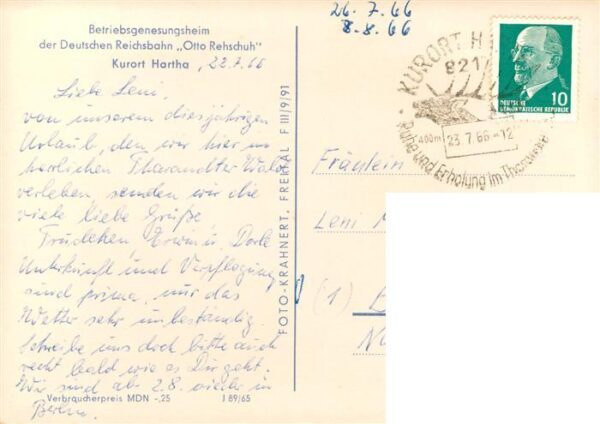 Betriebsgenesungsheim
der Deutschen Reichsbahn „Otto Rehschuh"
Kurort Hartha, 22.7.66
Liebe Leni,
von unserem diesjährigen
Urlaub, den wir hier im
herrlichen Tharandter Wald
verleben, senden wir die
viele liebe Grüße
Trudchen, Erwin u. Dorle
Unterkunft und Verpflegung
sind prima, nur das
Wetter sehr unbeständig
Schreibe uns doch bitte auch
recht bald wie es Dir geht.
Wir sind ab 2.8. wieder in
Berlin.
Verbraucherpreis MDN -,25 J 89/65
FOTO-KRAHNERT, FREITAL F III/9/91
26.7.66
8.8.66
KURORT H
821
400m
23.7.66-12
Ruhe und Erholung im Tharandter
DEUTSCHE
DEMOKRATISCHE REPUBLIK
10
Fräulein
Leni M
(1) B